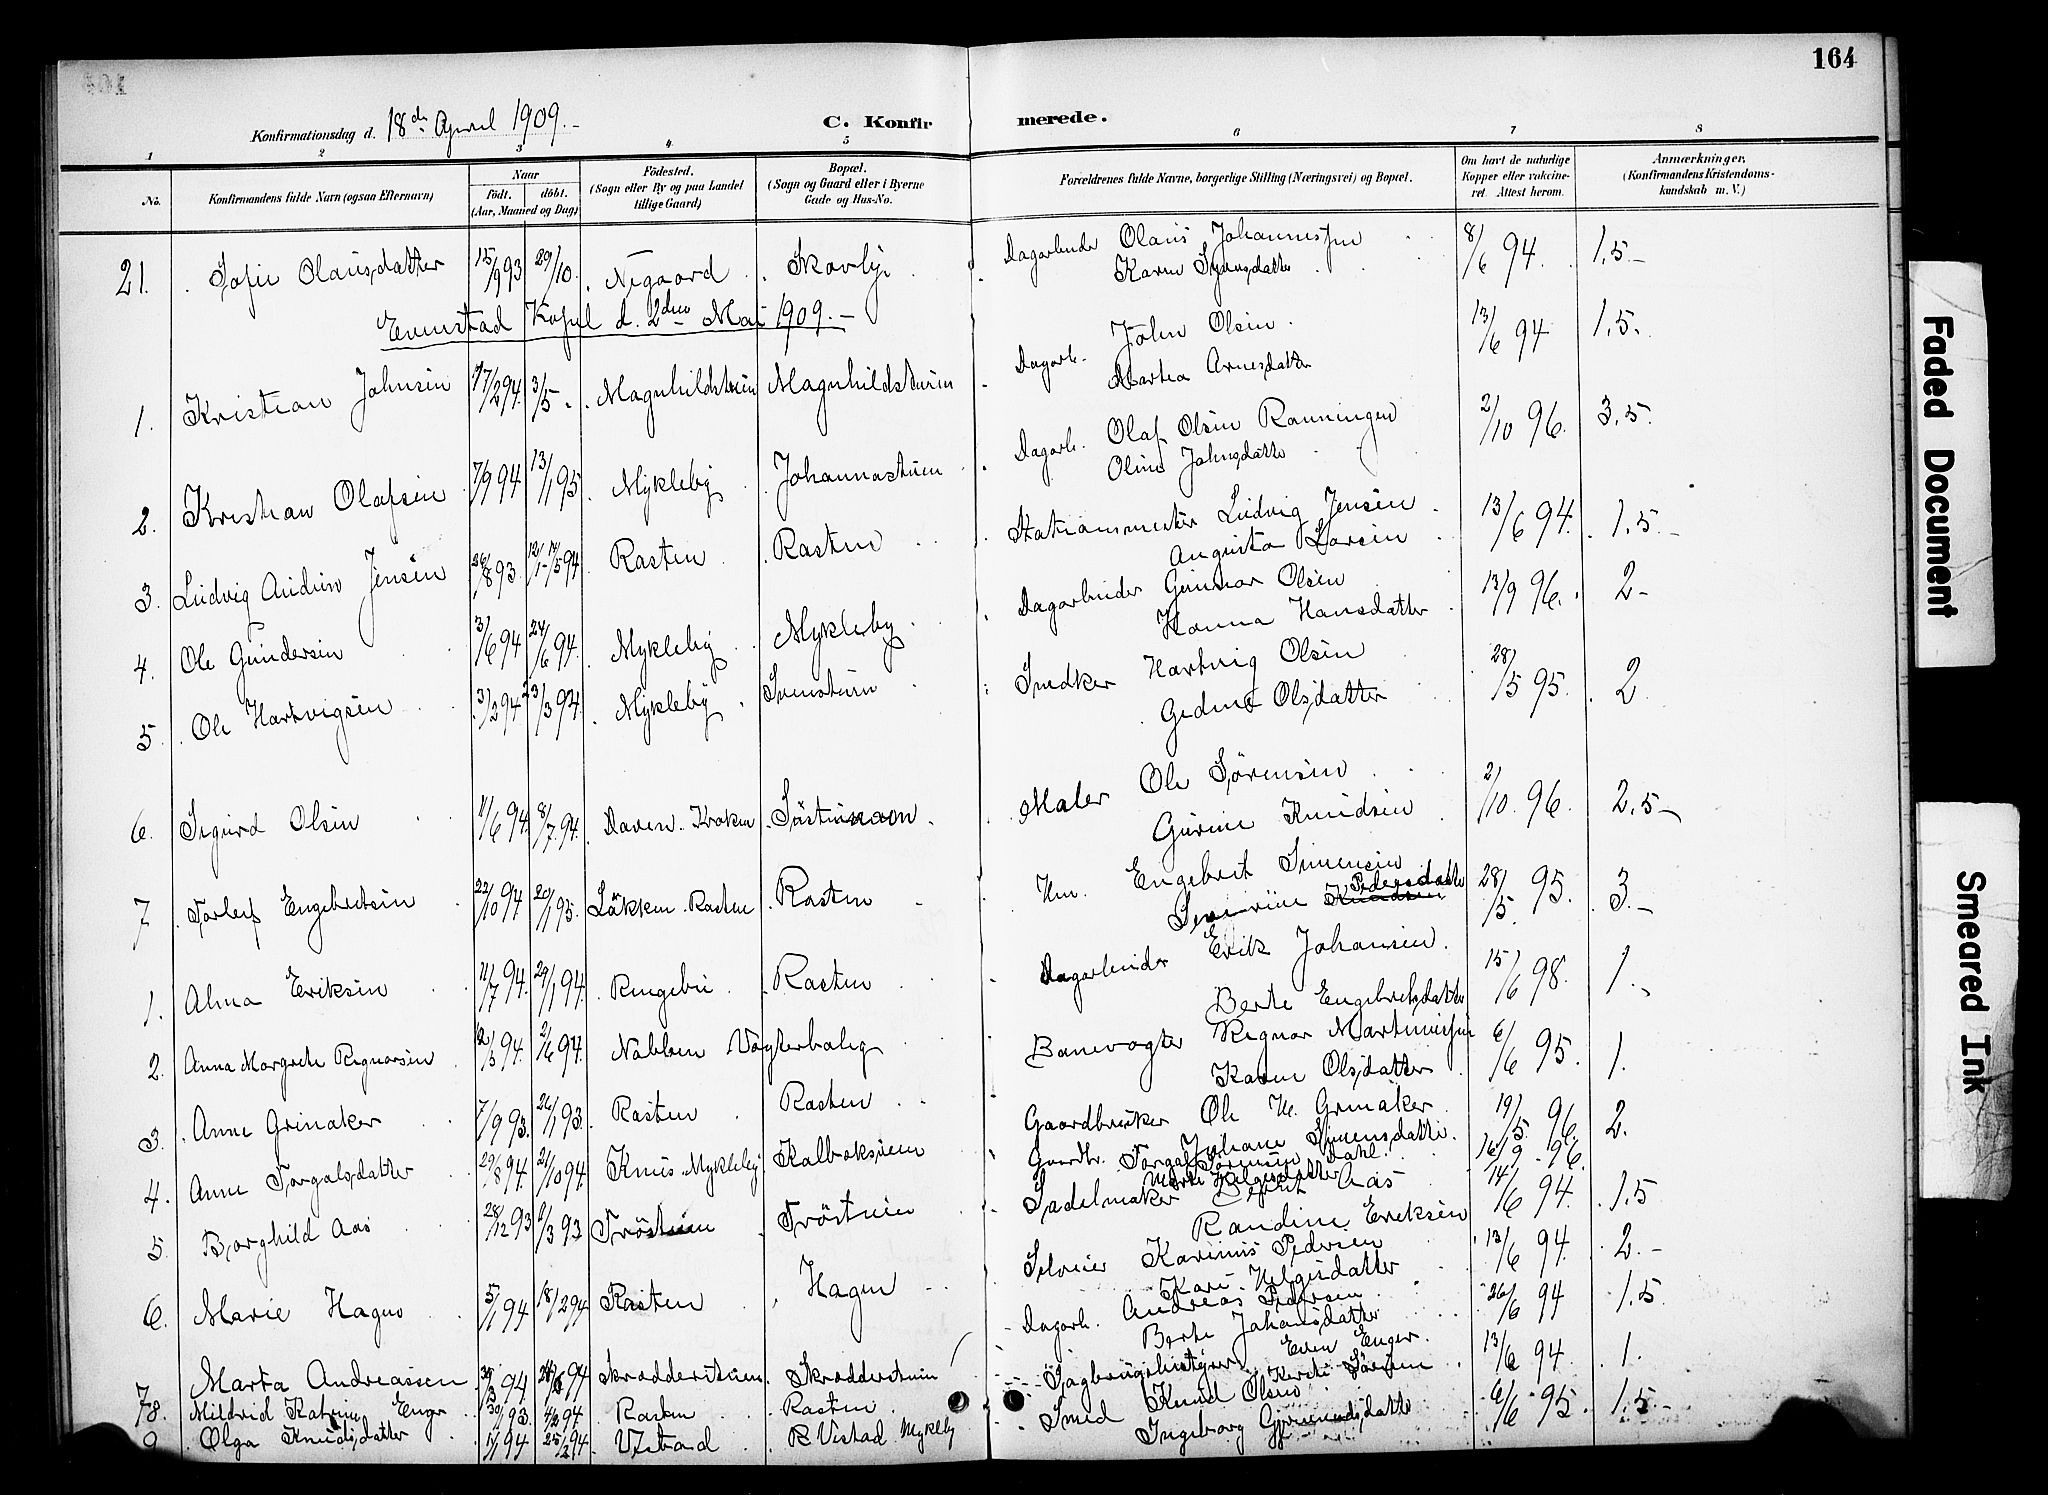 164
Konfirmationsdag d. 18de April 1909.-
C. Konfirmerede.
1 2 3 4 5 6 7 8
No.
Konfirmandens fulde Navn (ogsaa Efternavn)
Naar
födt. döbt.
(Aar, Maaned og Dag)
Födested.
(Sogn eller By og paa Landet
tillige Gaard)
Bopæl.
(Sogn og Gaard eller i Byerne
Gade og Hus-No.
Forældrenes fulde Navne, borgerlige Stilling (Næringsvei) og Bopæl.
Om havt de naturlige
Kopper eller vakcine-
ret. Attest herom.
Anmærkninger,
(Konfirmandens Kristendoms-
kundskab m. V.)
21. Sofie Olausdatter 15/9 93 29/10. Negaard Skovly. Dagarbeider Olaus Johannesen 8/6 94. 1,5-
Evenstad Kapel d. 2den Mai 1909.-
1. Kristian Johnsen 17/2 94. 3/5 Magnhildstuen Magnhildstuen Dagarb. John Olsen 13/6 94 1.5.
Martea Arnesdatter
2. Kristian Olafsen 7/9 94 13/1 95. Mykleby Johannastuen Dagarb. Olaf Olsen Rønningen 2/10 96. 3.5.
Oline Johnsdatter
3. Ludvig Jensen 26/8 93. Rasten Rasten Stationsmester Ludvig Jensen 13/6 94. 1.5-
Augusta Larsen
4. Ole Gundersen 3/6 94 24/6 94. Mykleby Mykleby Dagarbeider Gunnar Olsen 13/9 96. 2-
Hanna Hansdatter
5. Ole Hartvigsen 3/2 94 23/3 94. Mykleby Svenstuen Snedker Hartvig Olsen 28/5 95. 2
Gedine Olsdatter
6. Sigurd Olsen 11/6 94. 8/7 94. Kroken Maler Ole Sørensen 2/10 96. 2.5-
Gurine Knudsen
7 Torleif Engebretsen 22/10 94 20/1 95. Løkken. Rasten Rasten Hm. Engebret Simensen 28/5 95. 3.-
Severine Pedersdatter
1. Alma Eriksen 11/7 94. 29/1 94. Ringebu Rasten Dagarbeider Erik Johansen. 15/6 98. 1.
Berte Engebretsdatter
2. Anna Margrete Regnarsen 12/3 94. 2/6 94. Nabben Vogterbolig Banevogter Regnar Martinussen 6/6 95. 1.
Karen Olsdatter
3. Anne Grinaker 7/9 93. 26/1 93. Rasten Rasten Gaardbruker Ole H. Grinaker 19/5 96. 2.
Johane Simensdatter.
4. Anne Torgalsdatter 29/8 94. 21/10 94. Knus Mykleby Kalbaksveen Gaardbr. Torgal Sørensen Dahl. 16/9 96.
Marte Helgesdatter
5. Borghild Aas 28/12 93 9/3 93. Trøstuen Trøstuen Sadelmaker Aas 14/6 94. 1.5
Randine Eriksen
6. Marie Hagen 5/1 94 18/2 94 Rasten Hagen Karinus Pedersen 13/6 94. 2.-
Kari Helgesdatter
7 Marta Andreassen 94 Skrædderstuen. Skrædderstuen Dagarb. Andreas Pedersen 26/6 94 1.5.
Berte Johansdatter
8. Mildrid Katrine Enger 93. 94 Rasten Rasten Sagbrugsbestyrer Even Enger. 13/6 94. 1.
9 Olga Knudsdatter 94 25/2 94 Vestad R. Vestad Mykleby Smed Knud Olsen 6/6 95. 1.5-
Ingeborg
Faded Document
Smeared Ink